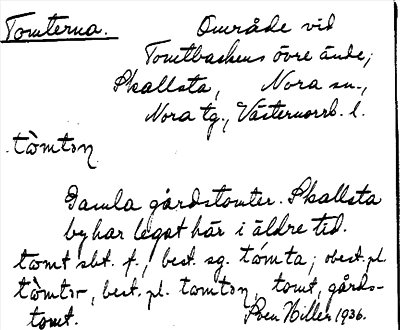 Tomterna. Område vid
Tomtbackens övre ände,
Skallsta, Nora sn.,
Nora tg., Västernorrl. l.
tòmtən
Gamla gårdstomter. Skallsta
by har legat här i äldre tid.
tomt sbt. f., best. sg. tómta; obest. pl.
tòmtər, best. pl. tomtən, tomt, gårds-
tomt. Sven Hiller 1936.